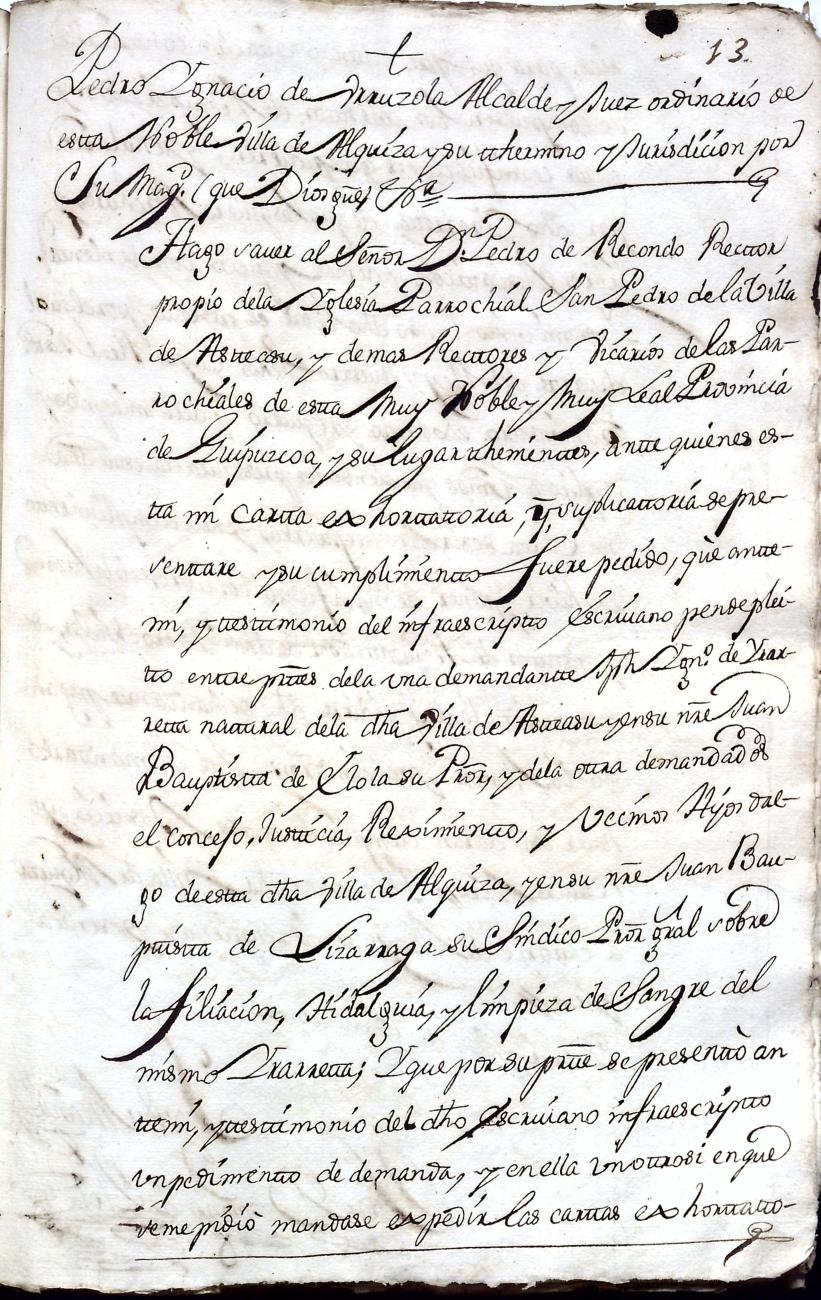 13.
Pedro Ygnacio de Urruzola Alcalde y Juez ordinario de
estta Noble Villa de Alquiza y su tthermino y Jurisdicion por
Su Magd. (que Dios gue) &ra
Hago saver al Señor Dn. Pedro de Recondo Recttor
propio dela Yglesia Parrochial San Pedro de la Villa
de Astteasu, y demas Recttores y Vicarios de las Par-
rochiales de estta Muy Noble y Muy Leal Provincia
de Guipuzcoa, y su lugarthenienttes, antte quienes es-
tta mi Cartta exhorttattoria, y suplicattoria se pre-
senttare y su cumplimientto fuere pedido, que antte-
mi, y ttesttimonio del infraescriptto escrivano pende plei-
tto enttre prttes dela una demandantte Jph Ygno. de Yrar-
retta natural dela dha Villa de Astteasu y en su nre Juan
Bauptistta de Elola su Pror, y dela ottra demandados
el Concejo, Justticia, Reximientto, y Vecinos Hijos dal-
go de estta dha Villa de Alquiza, y en su nre Juan Bau-
ptistta de Lizarraga su Sindico Pror gral sobre
la filiacion, Hidalguia, y limpieza de Sangre del
mismo Yrarretta; Y que por su prtte se presenttò an
ttemi, y testtimonio del dho escrivano infraescriptto
un pedimentto de demanda, y en ella un ottrosi en que
se me pidiò mandase expedir las carttas exhorttatto-